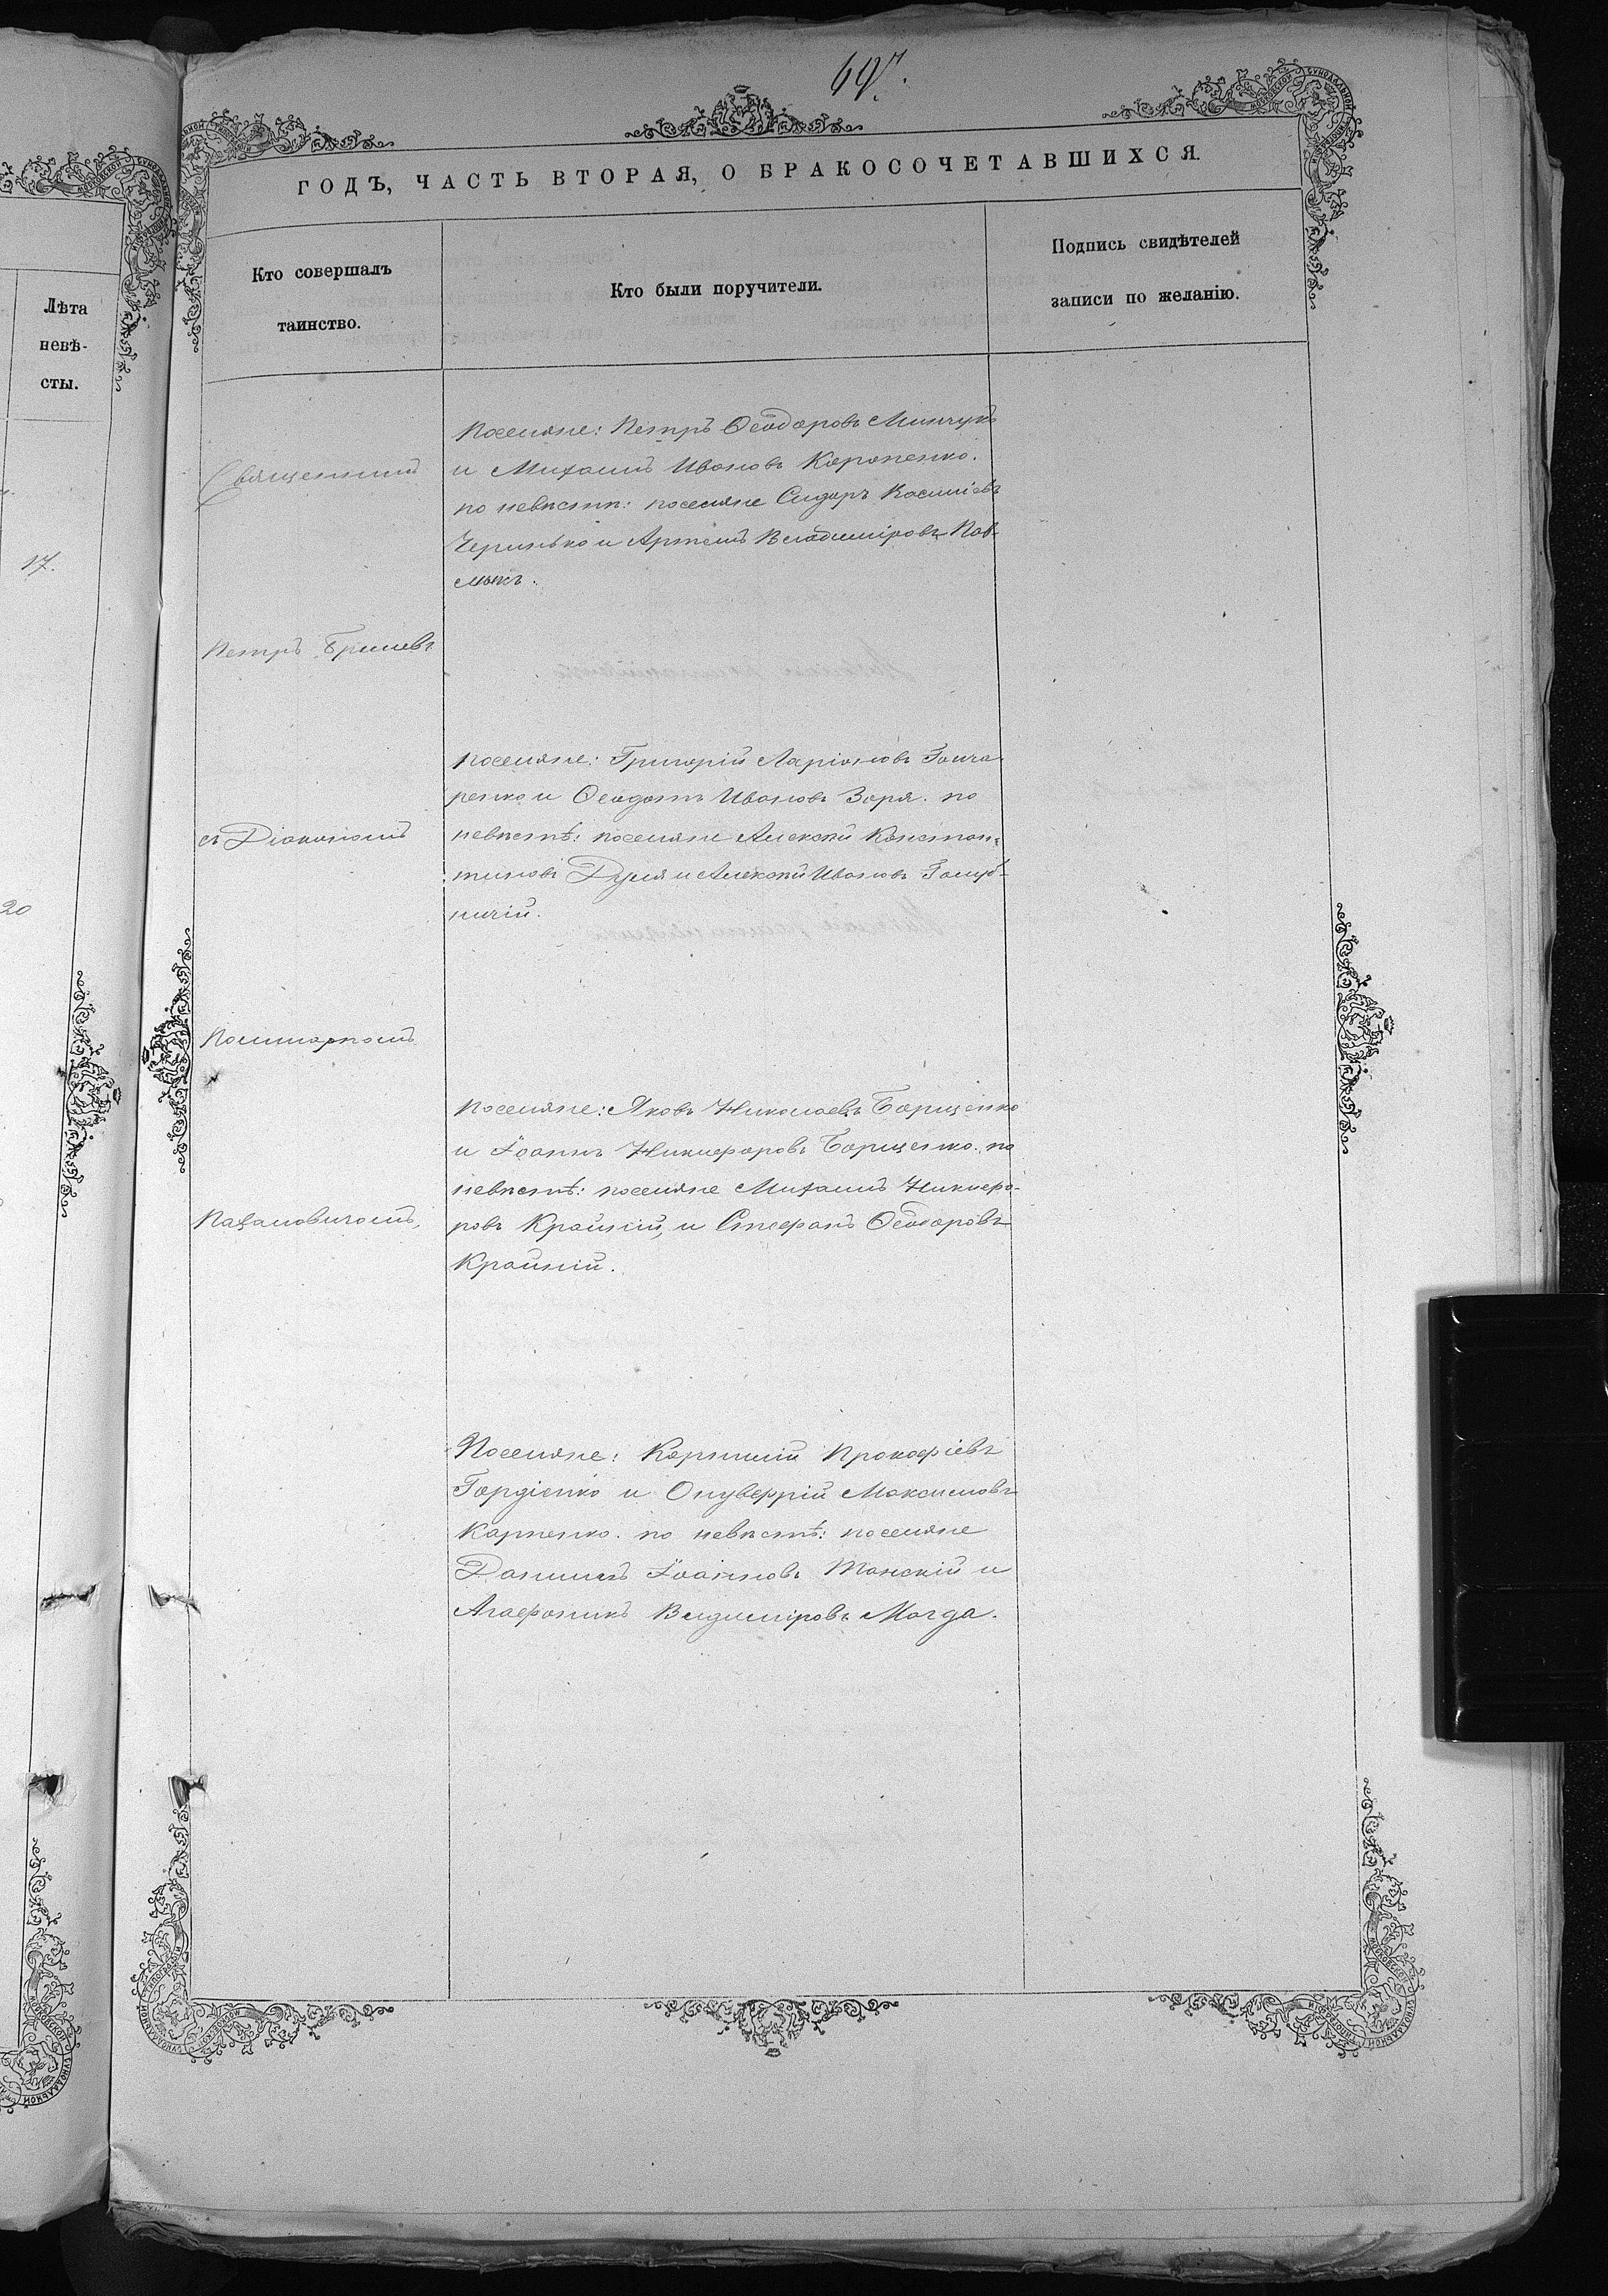 697.
ГОДЪ, ЧАСТЬ ВТОРАЯ, О БРАКОСОЧЕТАВШИХСЯ.
Лѣта
невѣ-
сты.
17.
20
Кто совершалъ
таинство.
Кто были поручители.
Подпись свидѣтелей
записи по желанію.
Священникъ
Петръ
съ Діакономъ
Поликарпомъ
Поселяне: Петръ Ѳеодоровъ Минчукъ
и Михаилъ Ивановъ Короненко.
по невѣстѣ: поселяне Сидоръ Касминъ
и Артемъ Владиміровъ Пав-
поселяне: Григорій Ларіоновъ Гонча-
ренко и Ѳеодотъ Ивановъ Заря. по
невѣстѣ: поселяне Алексѣй Констан-
тиновъ Дуля и Алексѣй Ивановъ Голуб-
ничій.
поселяне: Яковъ Николаевъ Борщенко
и Іоаннъ Никифоровъ Борщенко. по
невѣстѣ: поселяне Михаилъ Никифо-
ровъ Крайній, и Стефанъ Ѳеодоровъ
Крайній.
Поселяне: Корнилій Прокофіевъ
Гордіенко и Онуфрій Максимовъ
Карпенко. по невѣстѣ: поселяне
Даніилъ Іоанновъ Танскій и
Агафоникъ Владиміровъ Могда.